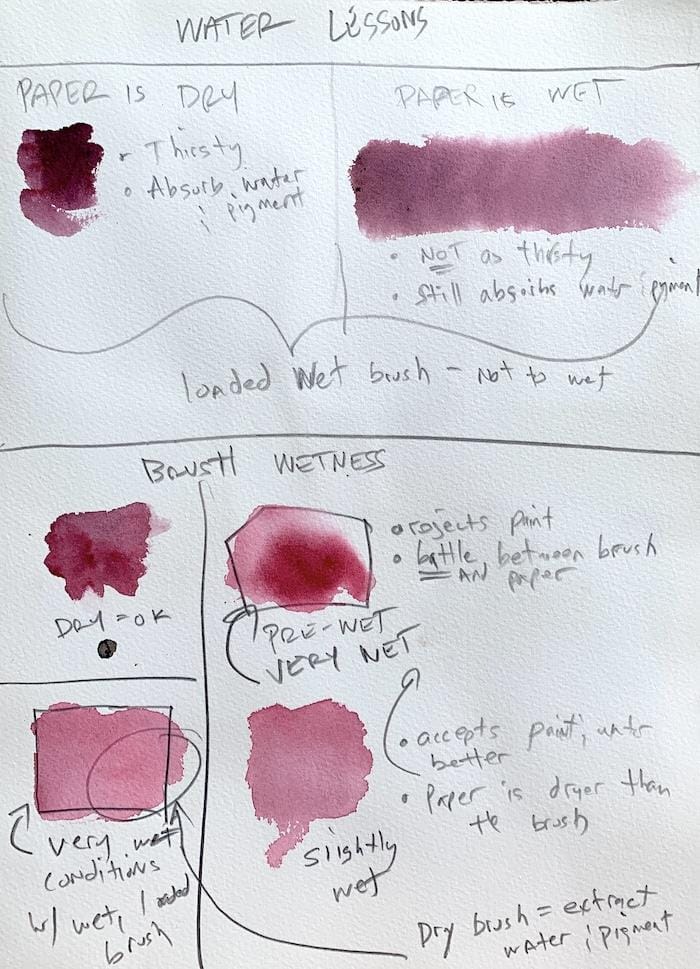 WATER LESSONS
PAPER IS DRY
• Thirsty
• Absorb water
& pigment
PAPER IS WET
• NOT as thirsty
• Still absorbs water & pigment
loaded Wet brush - Not to wet
BRUSH WETNESS
DRY = OK
• rejects paint
• battle between brush
AND paper
PRE-WET
VERY WET
• accepts paint & water
better
• Paper is dryer than
the brush
slightly
wet
very wet
conditions
w/ wet, loaded
brush
Dry brush = extract
water & pigment